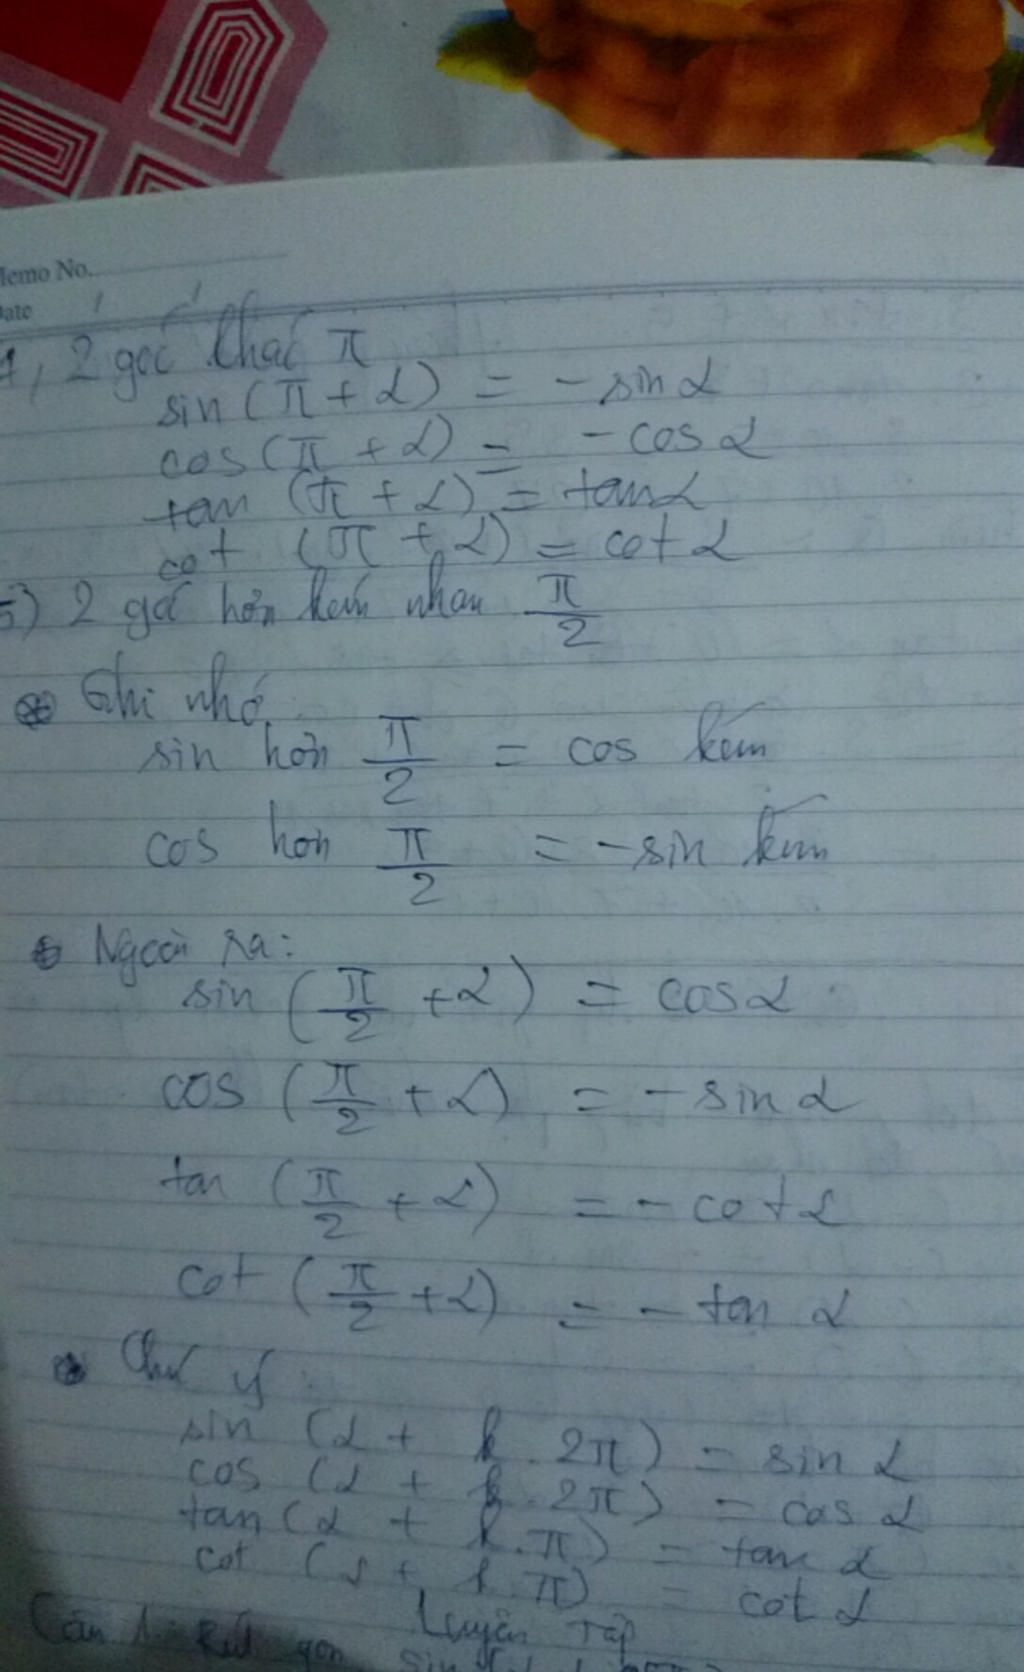 Memo No.
Date
4, 2 góc khác π
sin(π + α) = -sin α
cos(π + α) = -cos α
tan (π + α) = tan α
cot (π + α) = cot α
5) 2 góc hơn kém nhau π/2
Ghi nhớ
sin hơn π/2 = cos kém
cos hơn π/2 = -sin kém
Ngoài ra:
sin (π/2 + α) = cos α
cos (π/2 + α) = -sin α
tan (π/2 + α) = -cot α
cot (π/2 + α) = -tan α
Chú ý
sin (α + k.2π) = sin α
cos (α + k.2π) = cos α
tan (α + k.π) = tan α
cot (α + k.π) = cot α
Luyện tập
Câu 1: Rút gọn sin